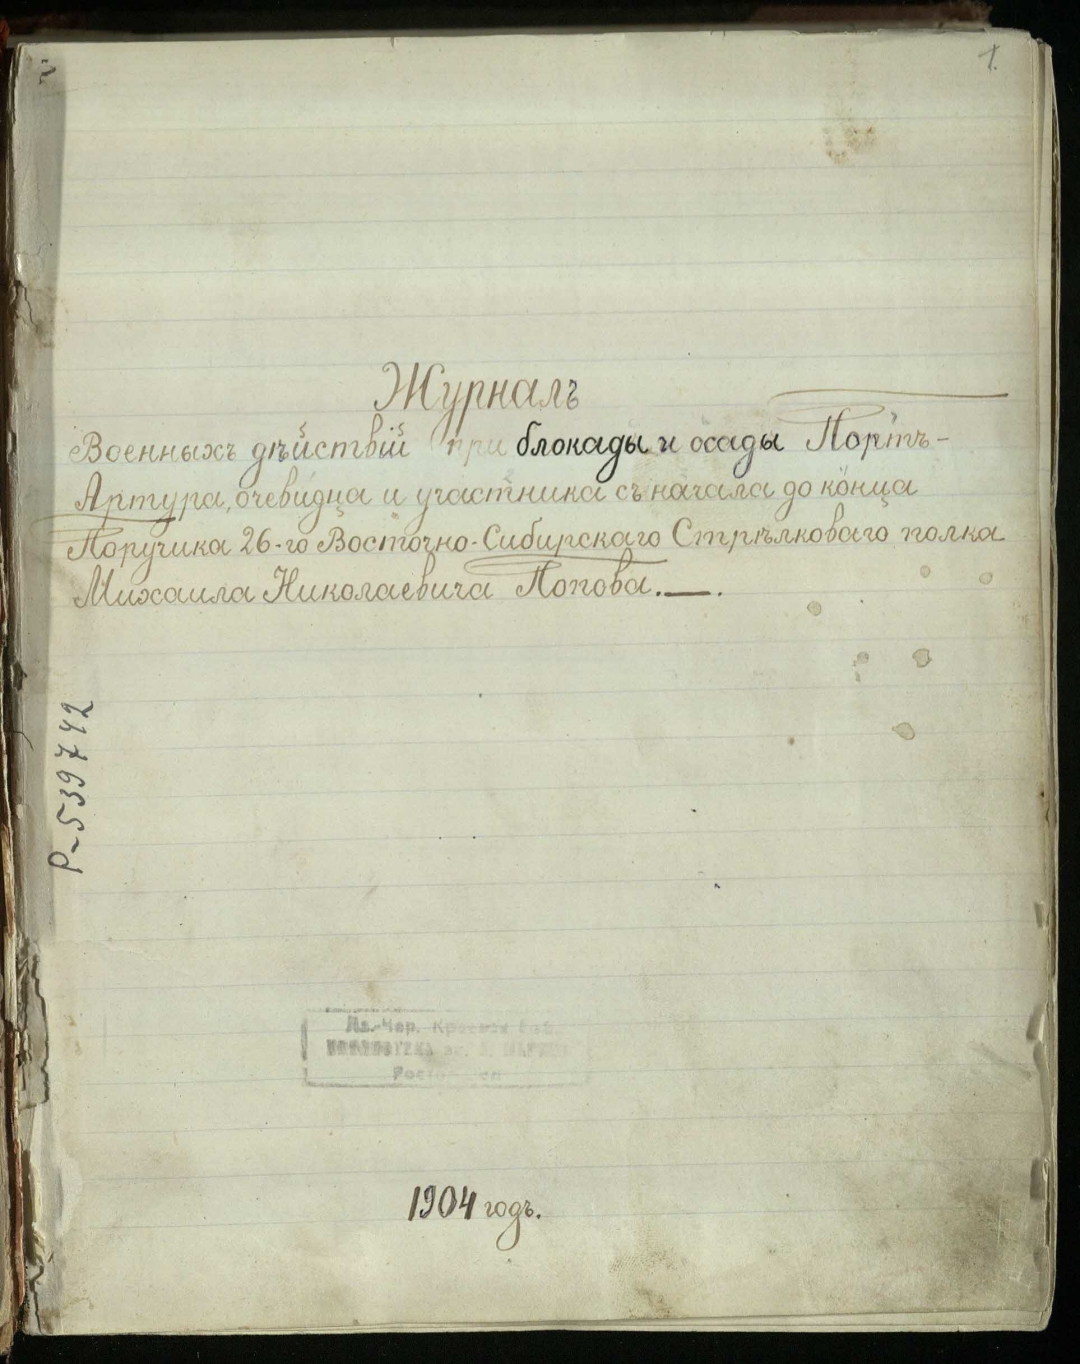 1.
Журналъ
Военныхъ дѣйствій при блокады и осады Портъ-
Артура, очевидца и участника съ начала до конца
Поручика 26-го Восточно-Сибирскаго Стрѣлковаго полка
Михаила Николаевича Попова.—.
Р-539742
Аз.-Чер.
1904 годъ.